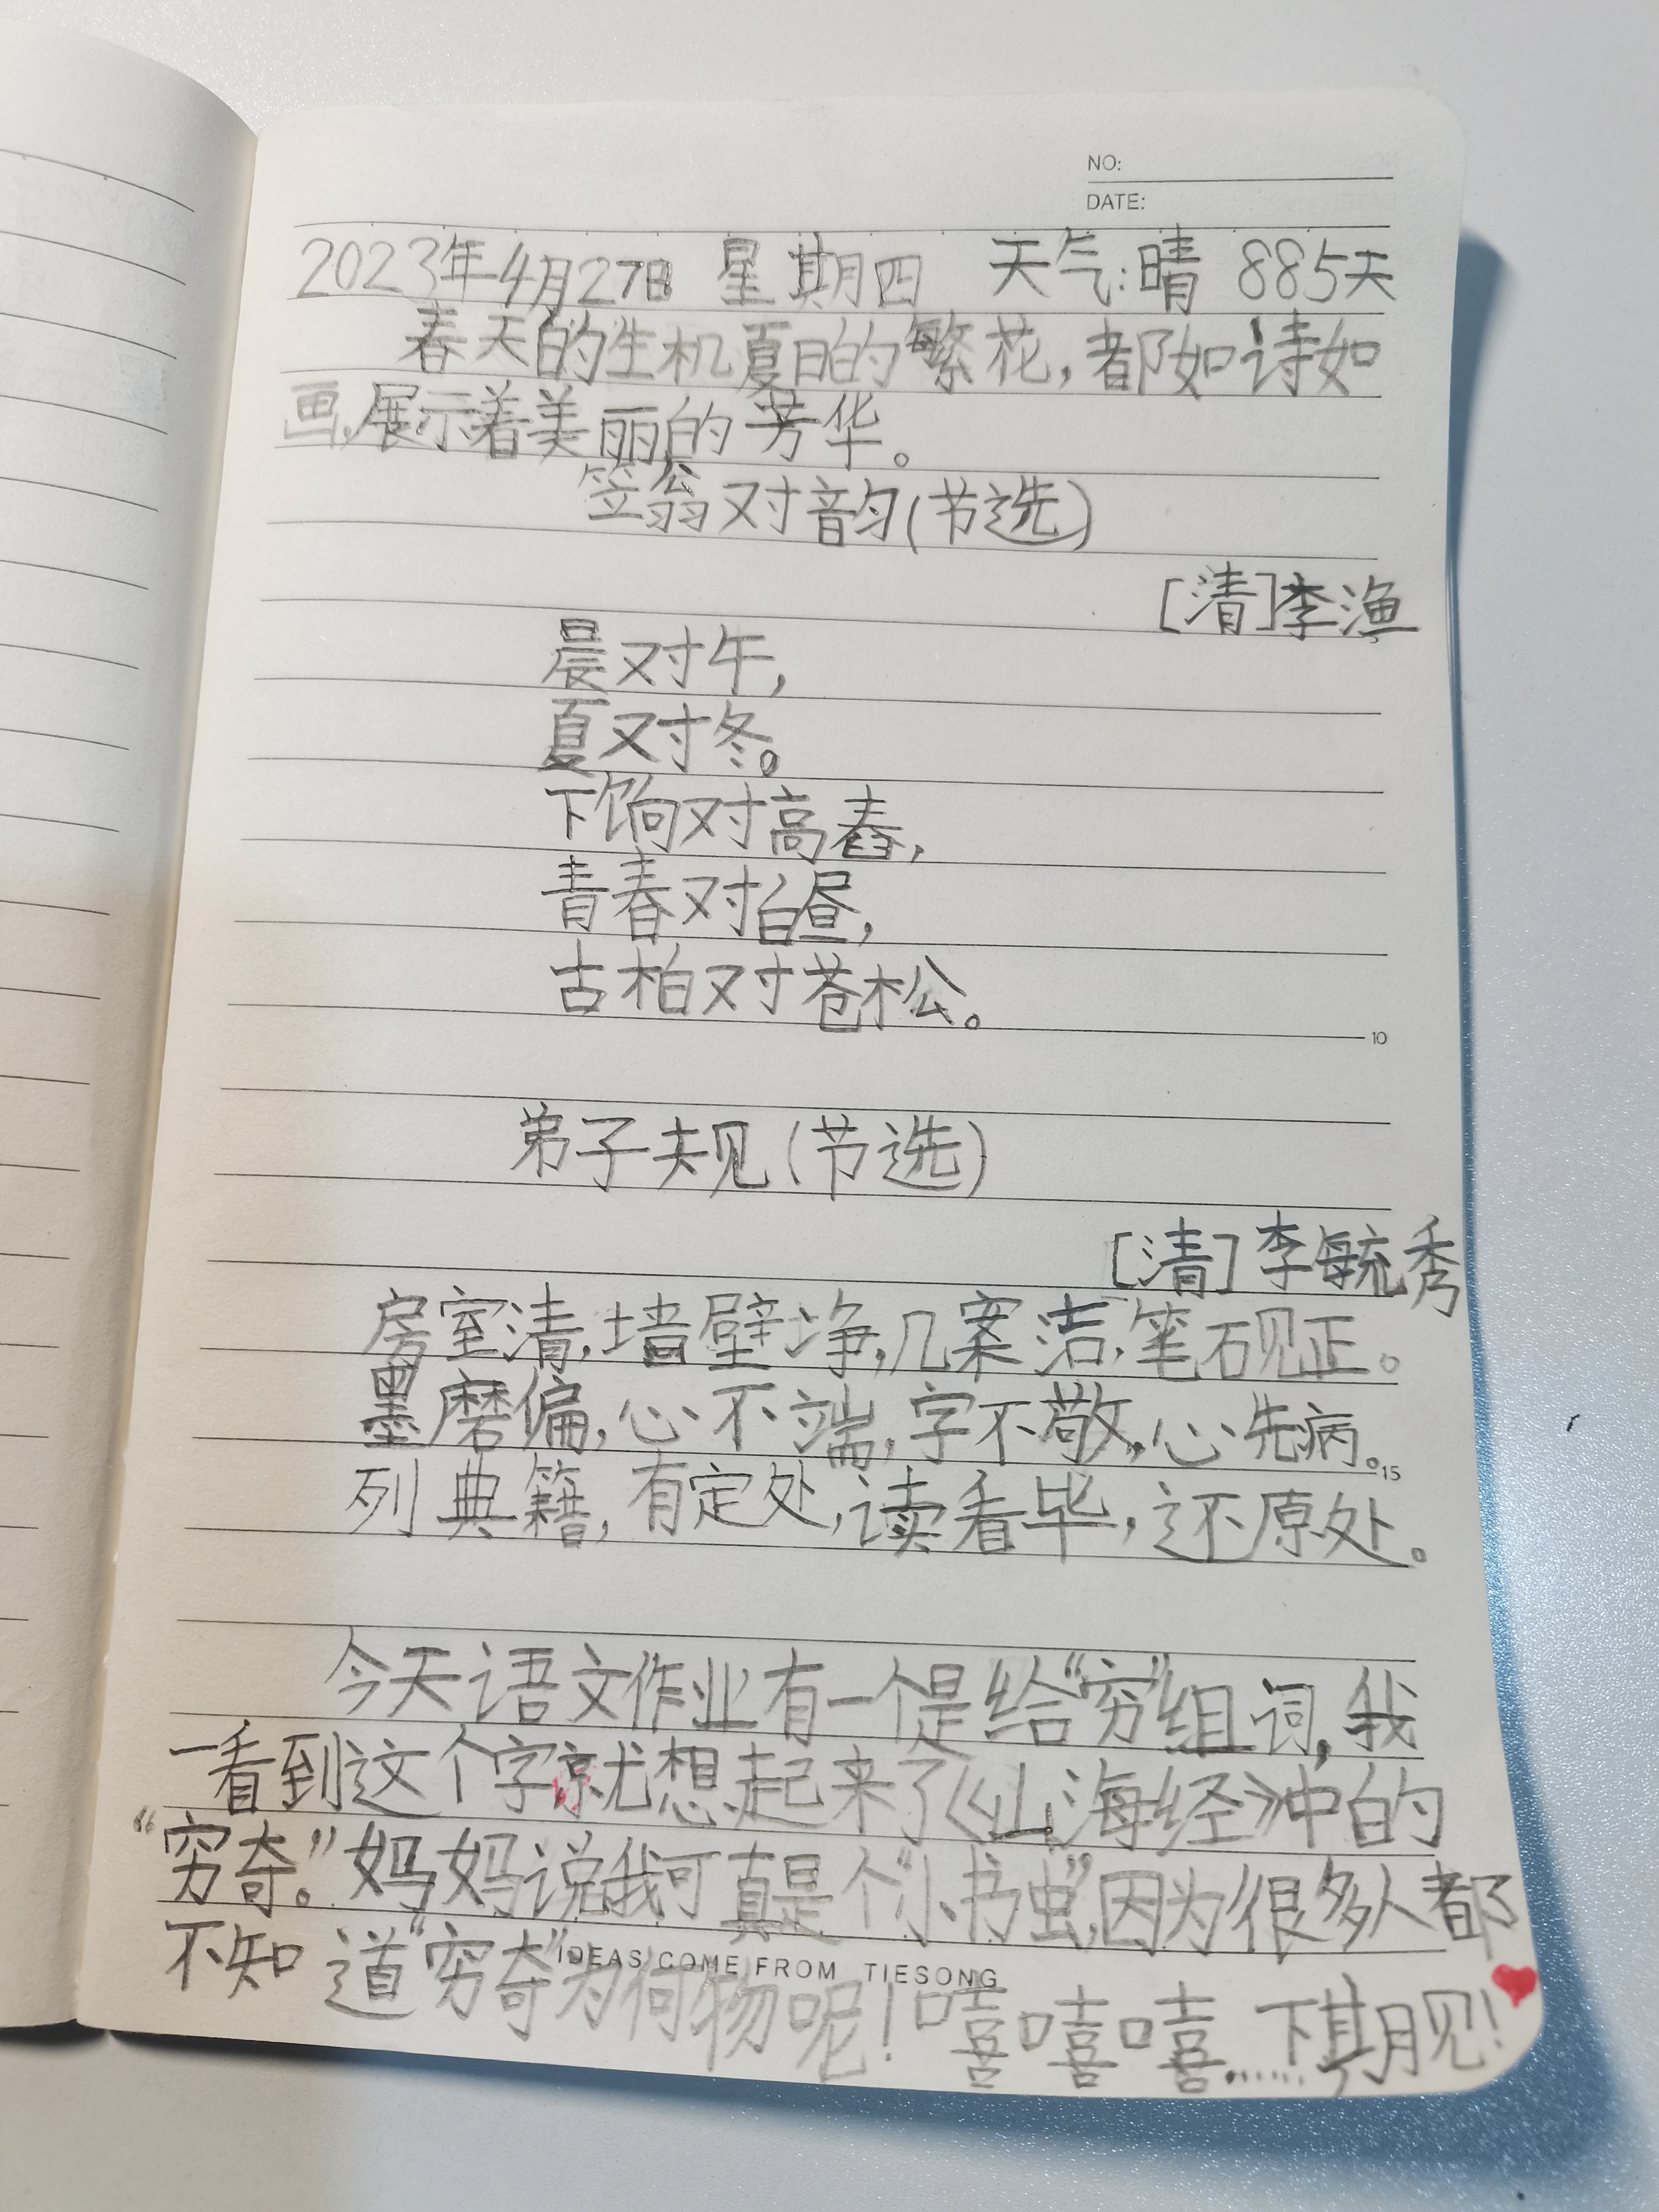 NO:
DATE:
2023年4月27日 星期四 天气:晴 885天
春天的生机夏日的繁花,都如诗如
画,展示着美丽的芳华。
笠翁对韵(节选)
[清]李渔
晨对午,
夏对冬。
下饷对高舂,
青春对白昼,
古柏对苍松。
10
弟子规(节选)
[清]李毓秀
房室清,墙壁净,几案洁,笔砚正。
墨磨偏,心不端,字不敬,心先病。
15
列典籍,有定处,读看毕,还原处。
今天语文作业有一个是给“穷”组词,我
一看到这个字就想起来了《山海经》中的
“穷奇。”妈妈说我可真是个“小书虫”,因为很多人都
不知道“穷奇”为何物呢!嘻嘻嘻……下期见!
IDEAS COME FROM TIESONG